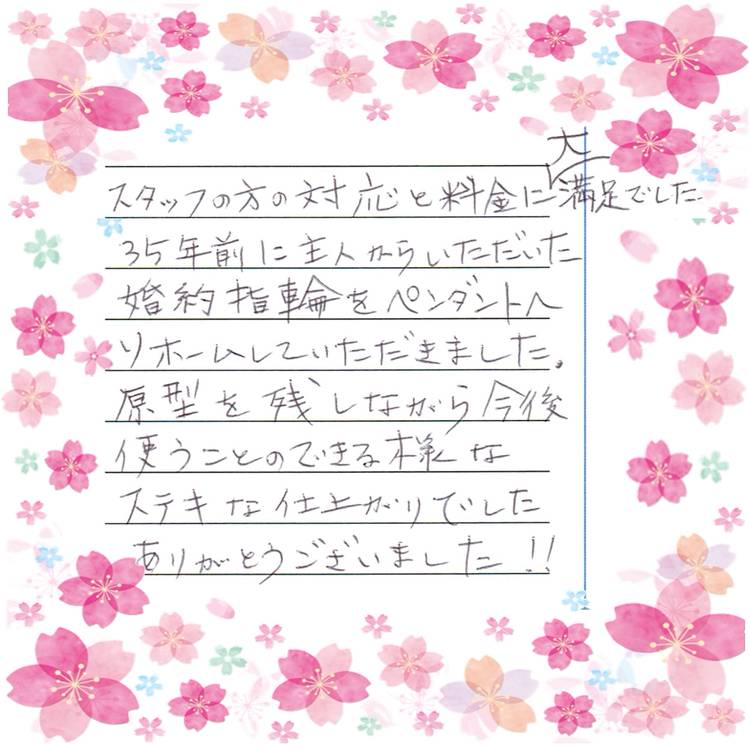 スタッフの方の対応と料金に大満足でした
35年前に主人からいただいた
婚約指輪をペンダントへ
リホームしていただきました。
原型を残しながら今後
使うことのできる様な
ステキな仕上がりでした
ありがとうございました!!